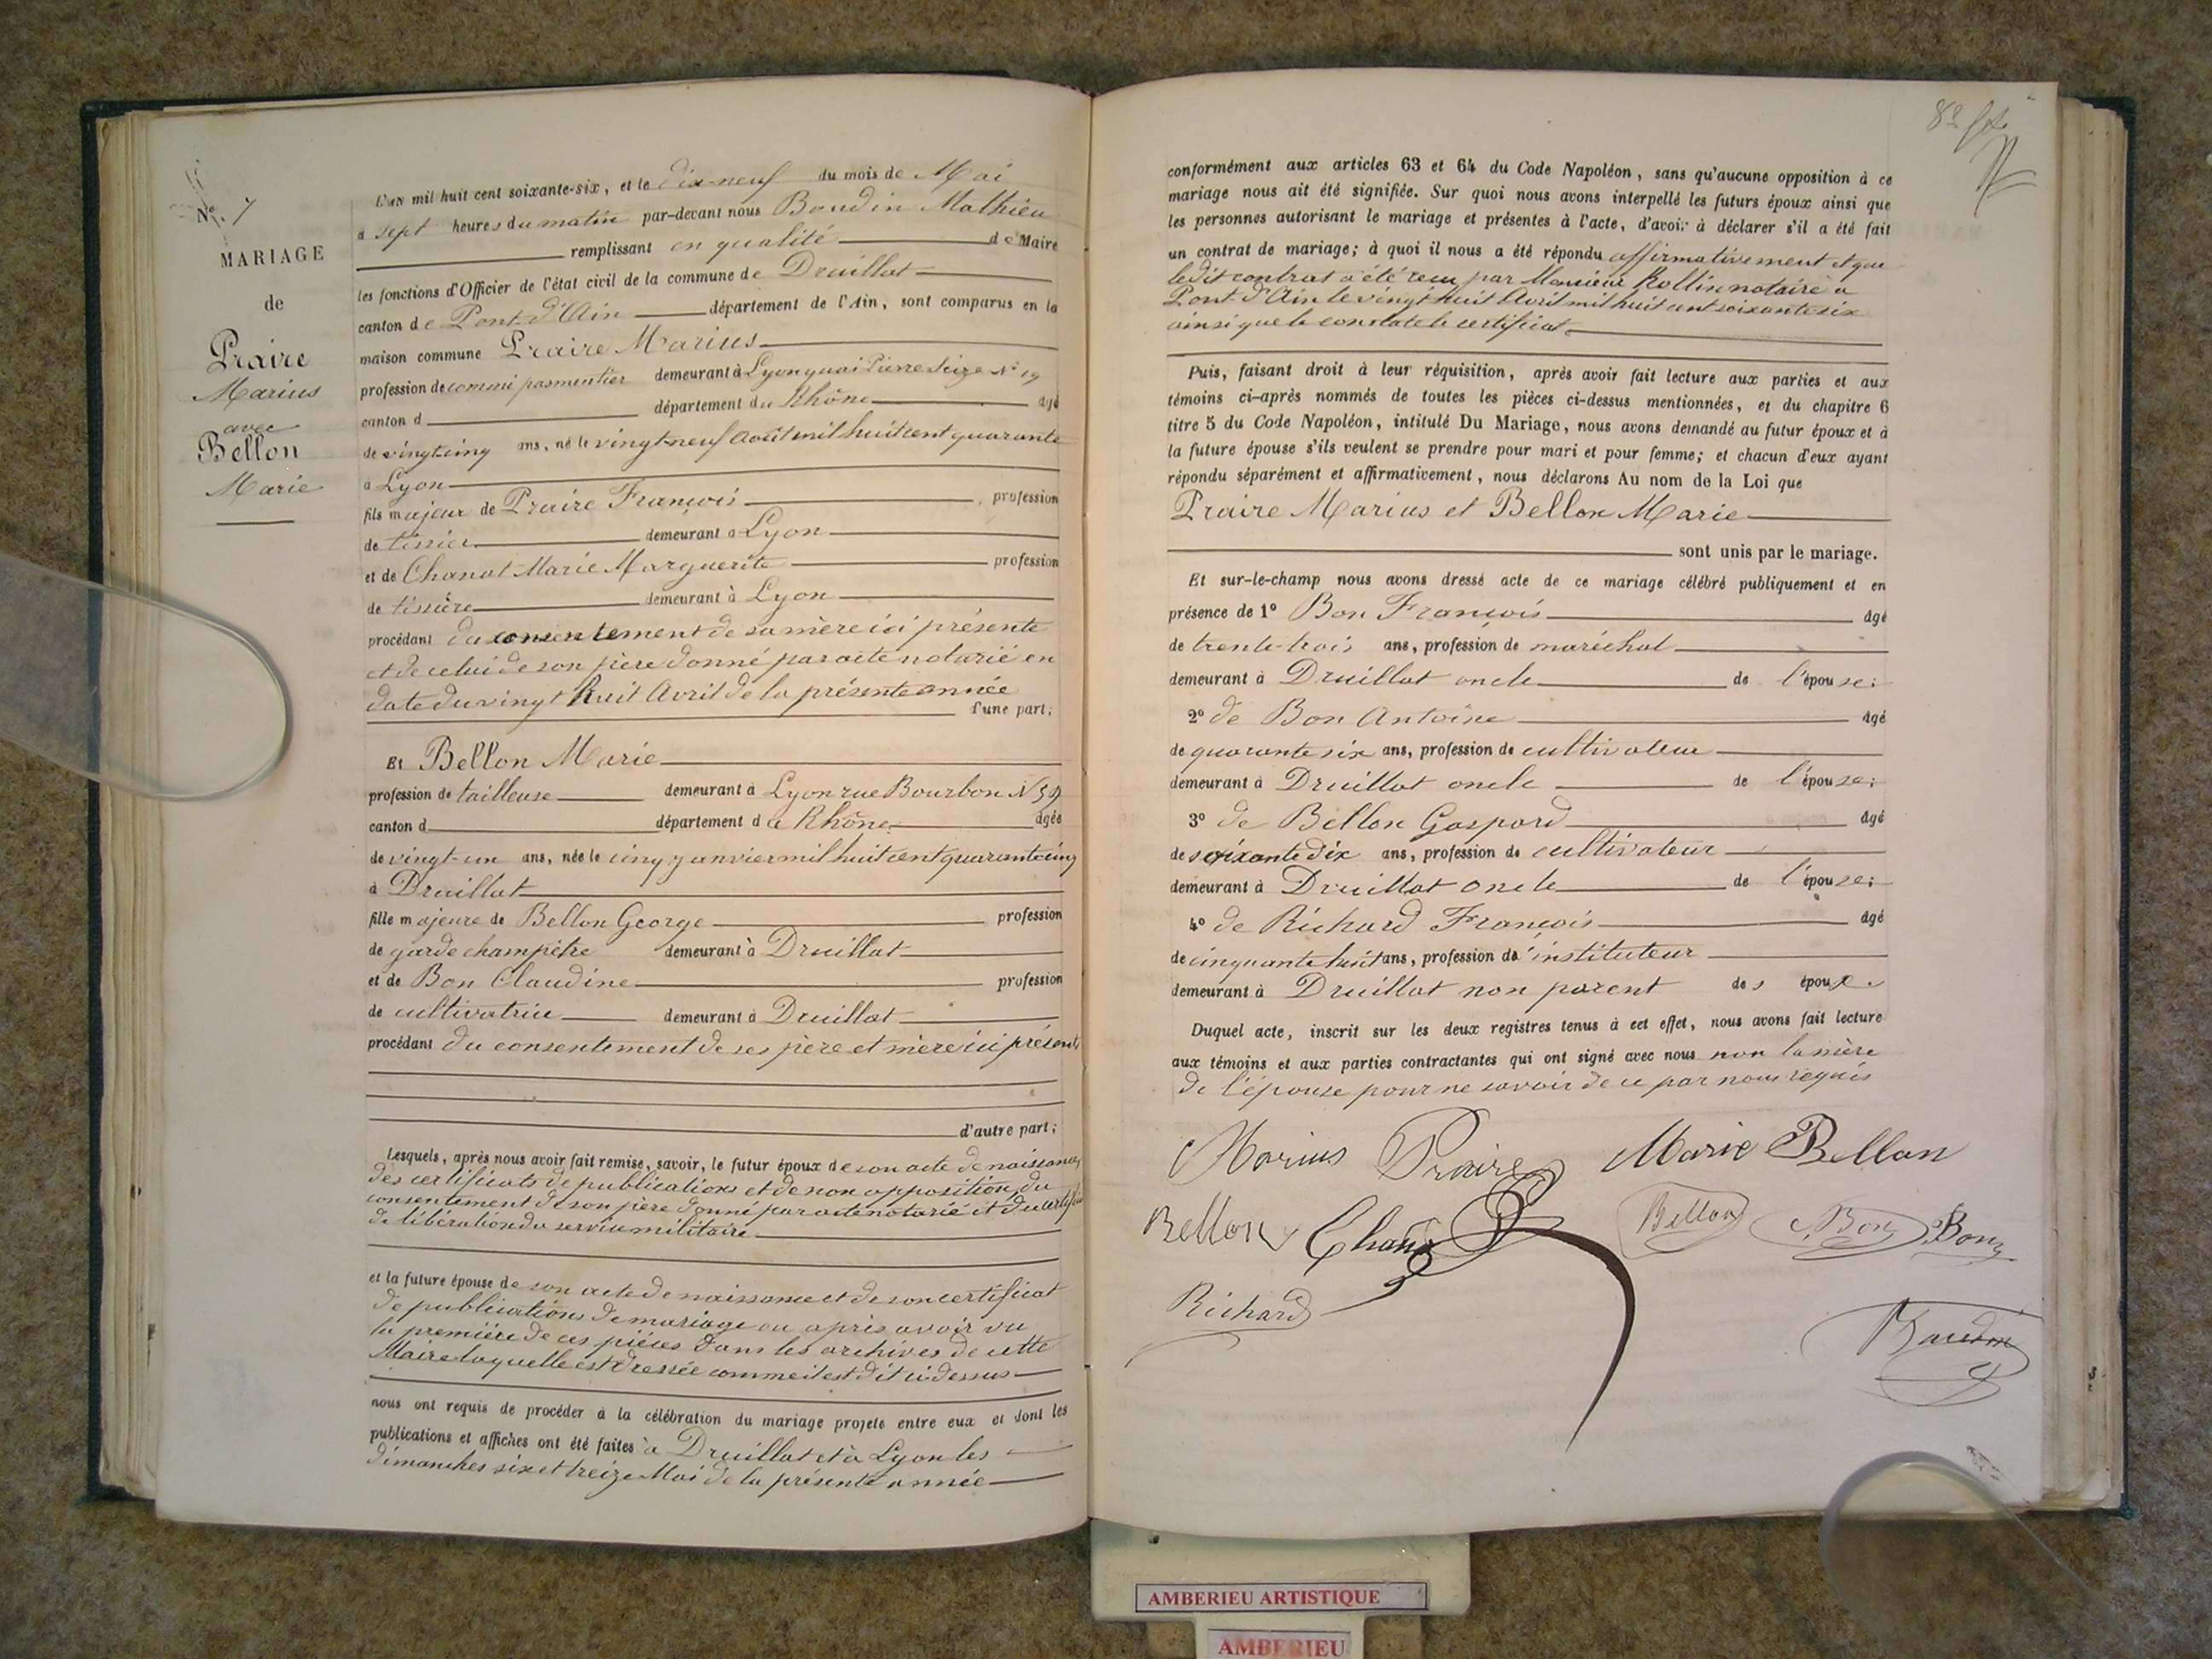 Nº. 7
MARIAGE
de
Praire
Marius
avec
Bellon
Marie
L'an mil huit cent soixante-six, et le dix-neuf du mois de Mai
à sept heures du matin par-devant nous Boudin Mathieu
remplissant en qualité de Maire
les fonctions d'Officier de l'état civil de la commune de Druillat
canton de Pont-d'Ain département de l'Ain, sont comparus en la
maison commune Praire Marius
profession de commi pasmentier demeurant à Lyon quai Pierre Seize Nº 19
canton d département du Rhône âgé
de vingt-cinq ans, né le vingt-neuf Août mil huit cent quarante
à Lyon
fils majeur de Praire François profession
de tissier demeurant à Lyon
et de Chanat Marie Marguerite profession
de tissière demeurant à Lyon
procédant du consentement de sa mère ici présente
et de celui de son père donné par acte notarié en
date du vingt huit Avril de la présente année
d'une part;
Et Bellon Marie
profession de tailleuse demeurant à Lyon rue Bourbon N 59
canton d département du Rhône âgée
de vingt-un ans, née le cinq janvier mil huit cent quarante cinq
à Druillat
fille majeure de Bellon George profession
de garde champêtre demeurant à Druillat
et de Bon Claudine profession
de cultivatrice demeurant à Druillat
procédant du consentement de ses père et mère ici présents
d'autre part;
Lesquels, après nous avoir fait remise, savoir, le futur époux de son acte de naissance
des certificats de publications et de non opposition, du
consentement de son père donné par acte notarié et du certificat
de libération du service militaire
et la future épouse de son acte de naissance et de son certificat
de publications de mariage ou après avoir vu
la première de ces pièces dans les archives de cette
Maire laquelle est dressée comme il est dit ci-dessus
nous ont requis de procéder à la célébration du mariage projeté entre eux et dont les
publications et affiches ont été faites à Druillat et à Lyon les
dimanches six et treize Mai de la présente année
conformément aux articles 63 et 64 du Code Napoléon, sans qu'aucune opposition à ce
mariage nous ait été signifiée. Sur quoi nous avons interpellé les futurs époux ainsi que
les personnes autorisant le mariage et présentes à l'acte, d'avoir à déclarer s'il a été fait
un contrat de mariage; à quoi il nous a été répondu affirmativement et que
ledit contrat a été reçu par Monsieur Rollin notaire à
Pont-d'Ain le vingt huit Avril mil huit cent soixante six
ainsi que le constate le certificat
Puis, faisant droit à leur réquisition, après avoir fait lecture aux parties et aux
témoins ci-après nommés de toutes les pièces ci-dessus mentionnées, et du chapitre 6
titre 5 du Code Napoléon, intitulé Du Mariage, nous avons demandé au futur époux et à
la future épouse s'ils veulent se prendre pour mari et pour femme; et chacun d'eux ayant
répondu séparément et affirmativement, nous déclarons Au nom de la Loi que
Praire Marius et Bellon Marie
sont unis par le mariage.
Et sur-le-champ nous avons dressé acte de ce mariage célébré publiquement et en
présence de 1º Bon François âgé
de trente-trois ans, profession de maréchal
demeurant à Druillat oncle de l'épouse;
2º de Bon Antoine âgé
de quarante six ans, profession de cultivateur
demeurant à Druillat oncle de l'épouse;
3º de Bellon Gaspard âgé
de soixante dix ans, profession de cultivateur
demeurant à Druillat oncle de l'épouse;
4º de Richard François âgé
de cinquante huit ans, profession d'instituteur
demeurant à Druillat non parent des époux.
Duquel acte, inscrit sur les deux registres tenus à cet effet, nous avons fait lecture
aux témoins et aux parties contractantes qui ont signé avec nous non la mère
de l'épouse pour ne savoir de ce par nous requis
Marius Praire Marie Bellon
Bellon Bellon Bon Bon
Richard
Baudin
AMBERIEU ARTISTIQUE
AMBERIEU